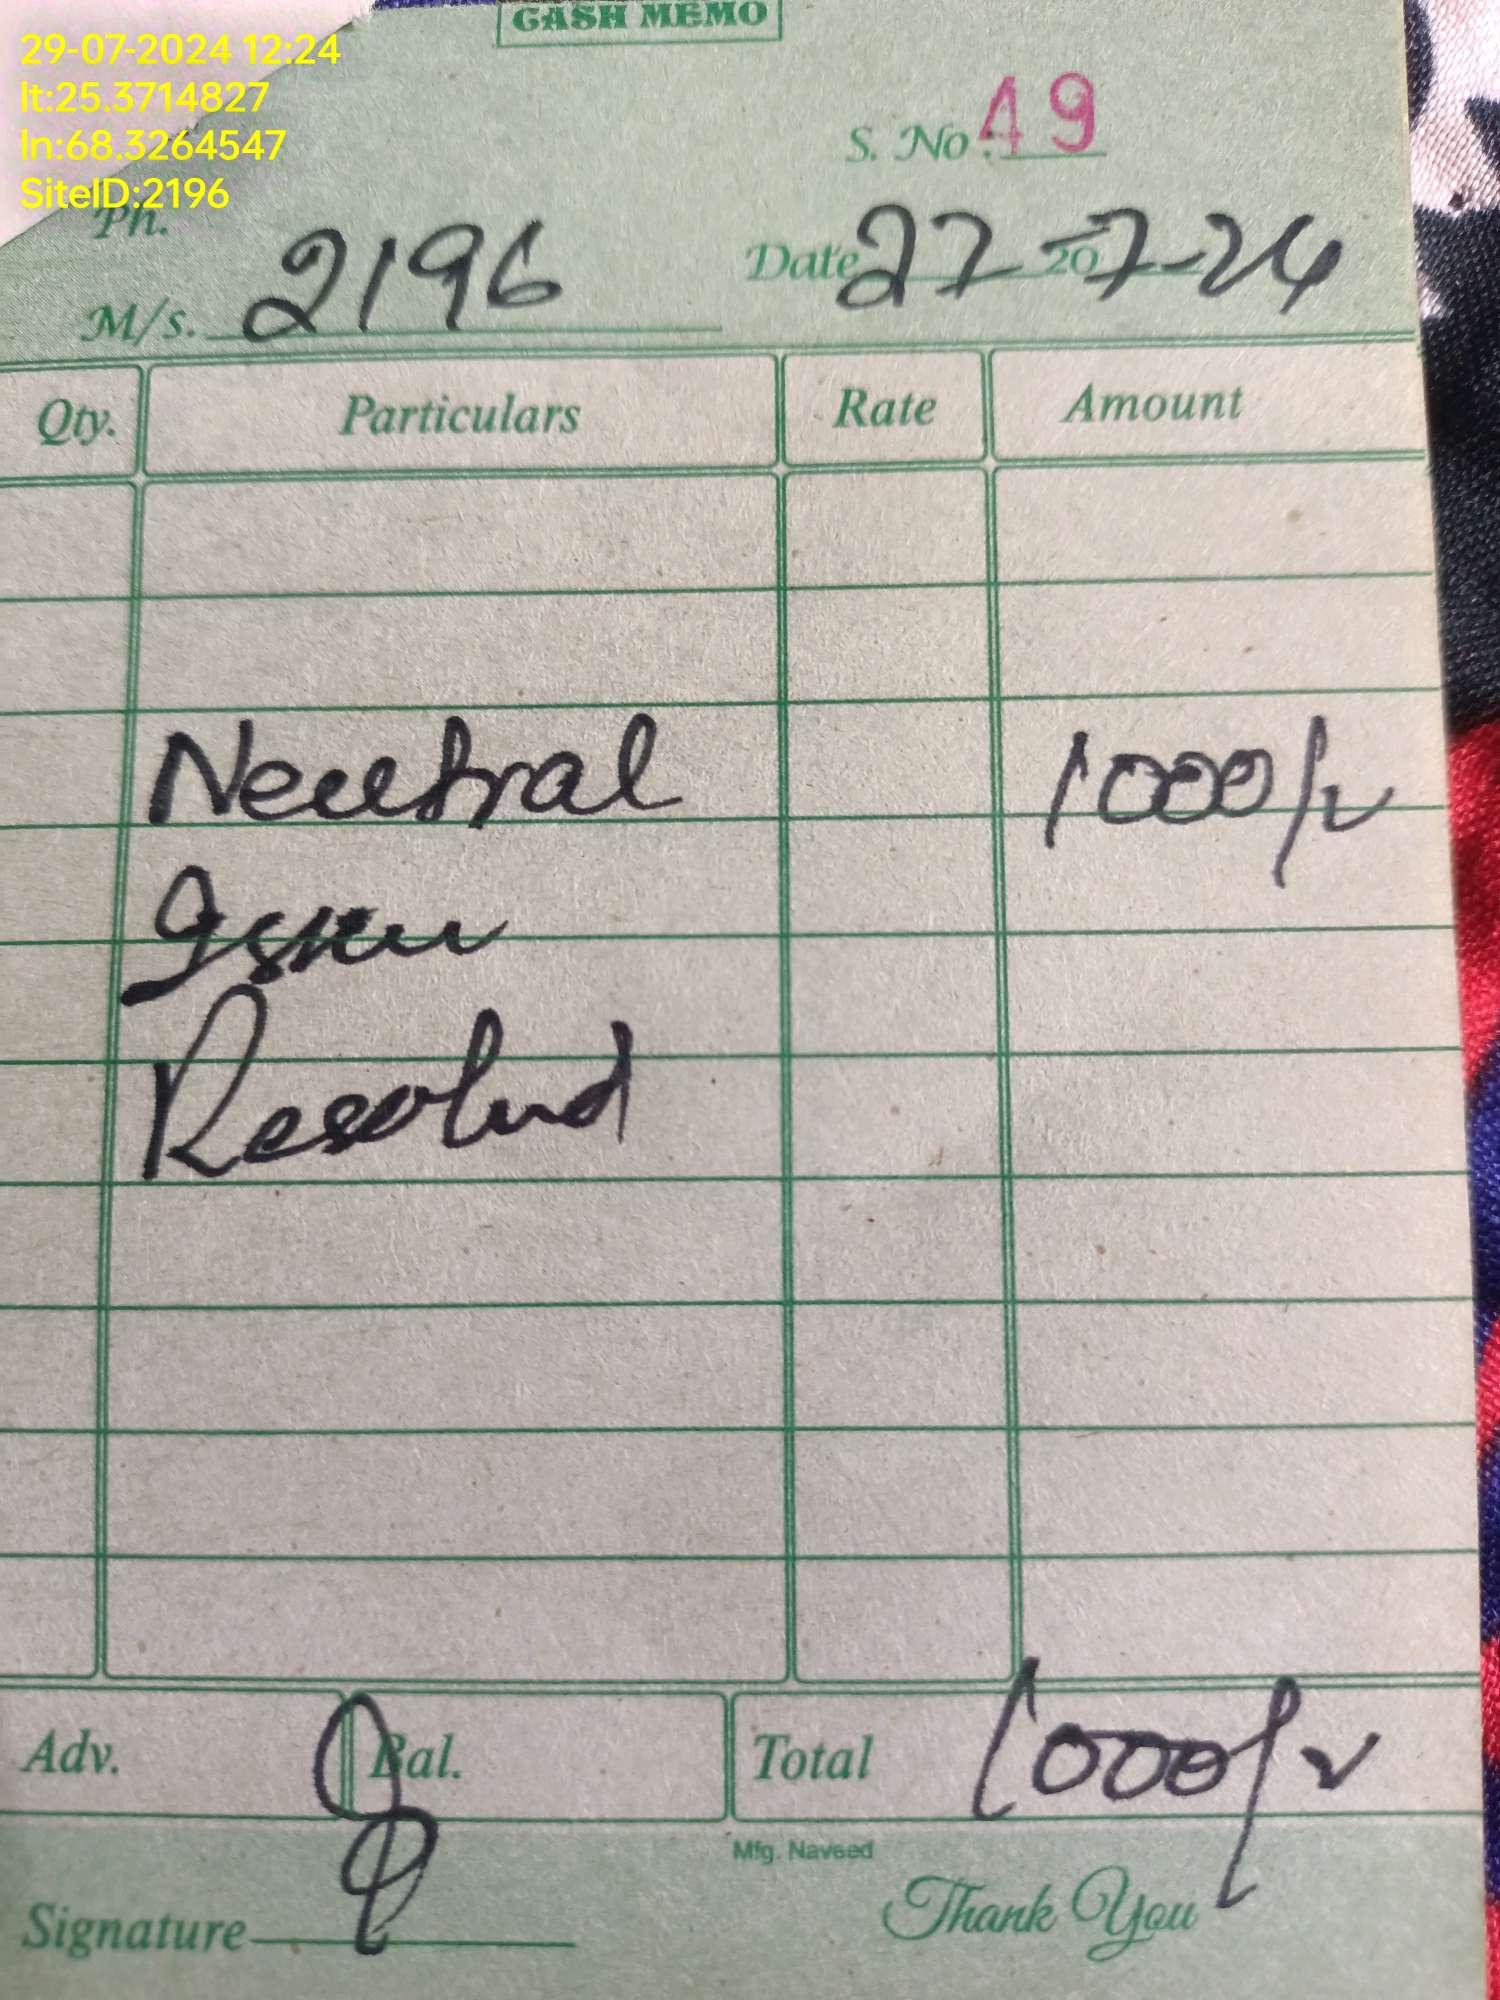 CASH MEMO
29-07-2024 12:24
lt:25.3714827
ln:68.3264547
SiteID:2196
S. No. 49
Ph.
M/s. 2196
Date 27-7-24 20
Qty. Particulars Rate Amount
Neutral 1000/-
Issue
Resolved
Adv. Bal. Total 1000/-
Mfg. Naveed
Signature
Thank You